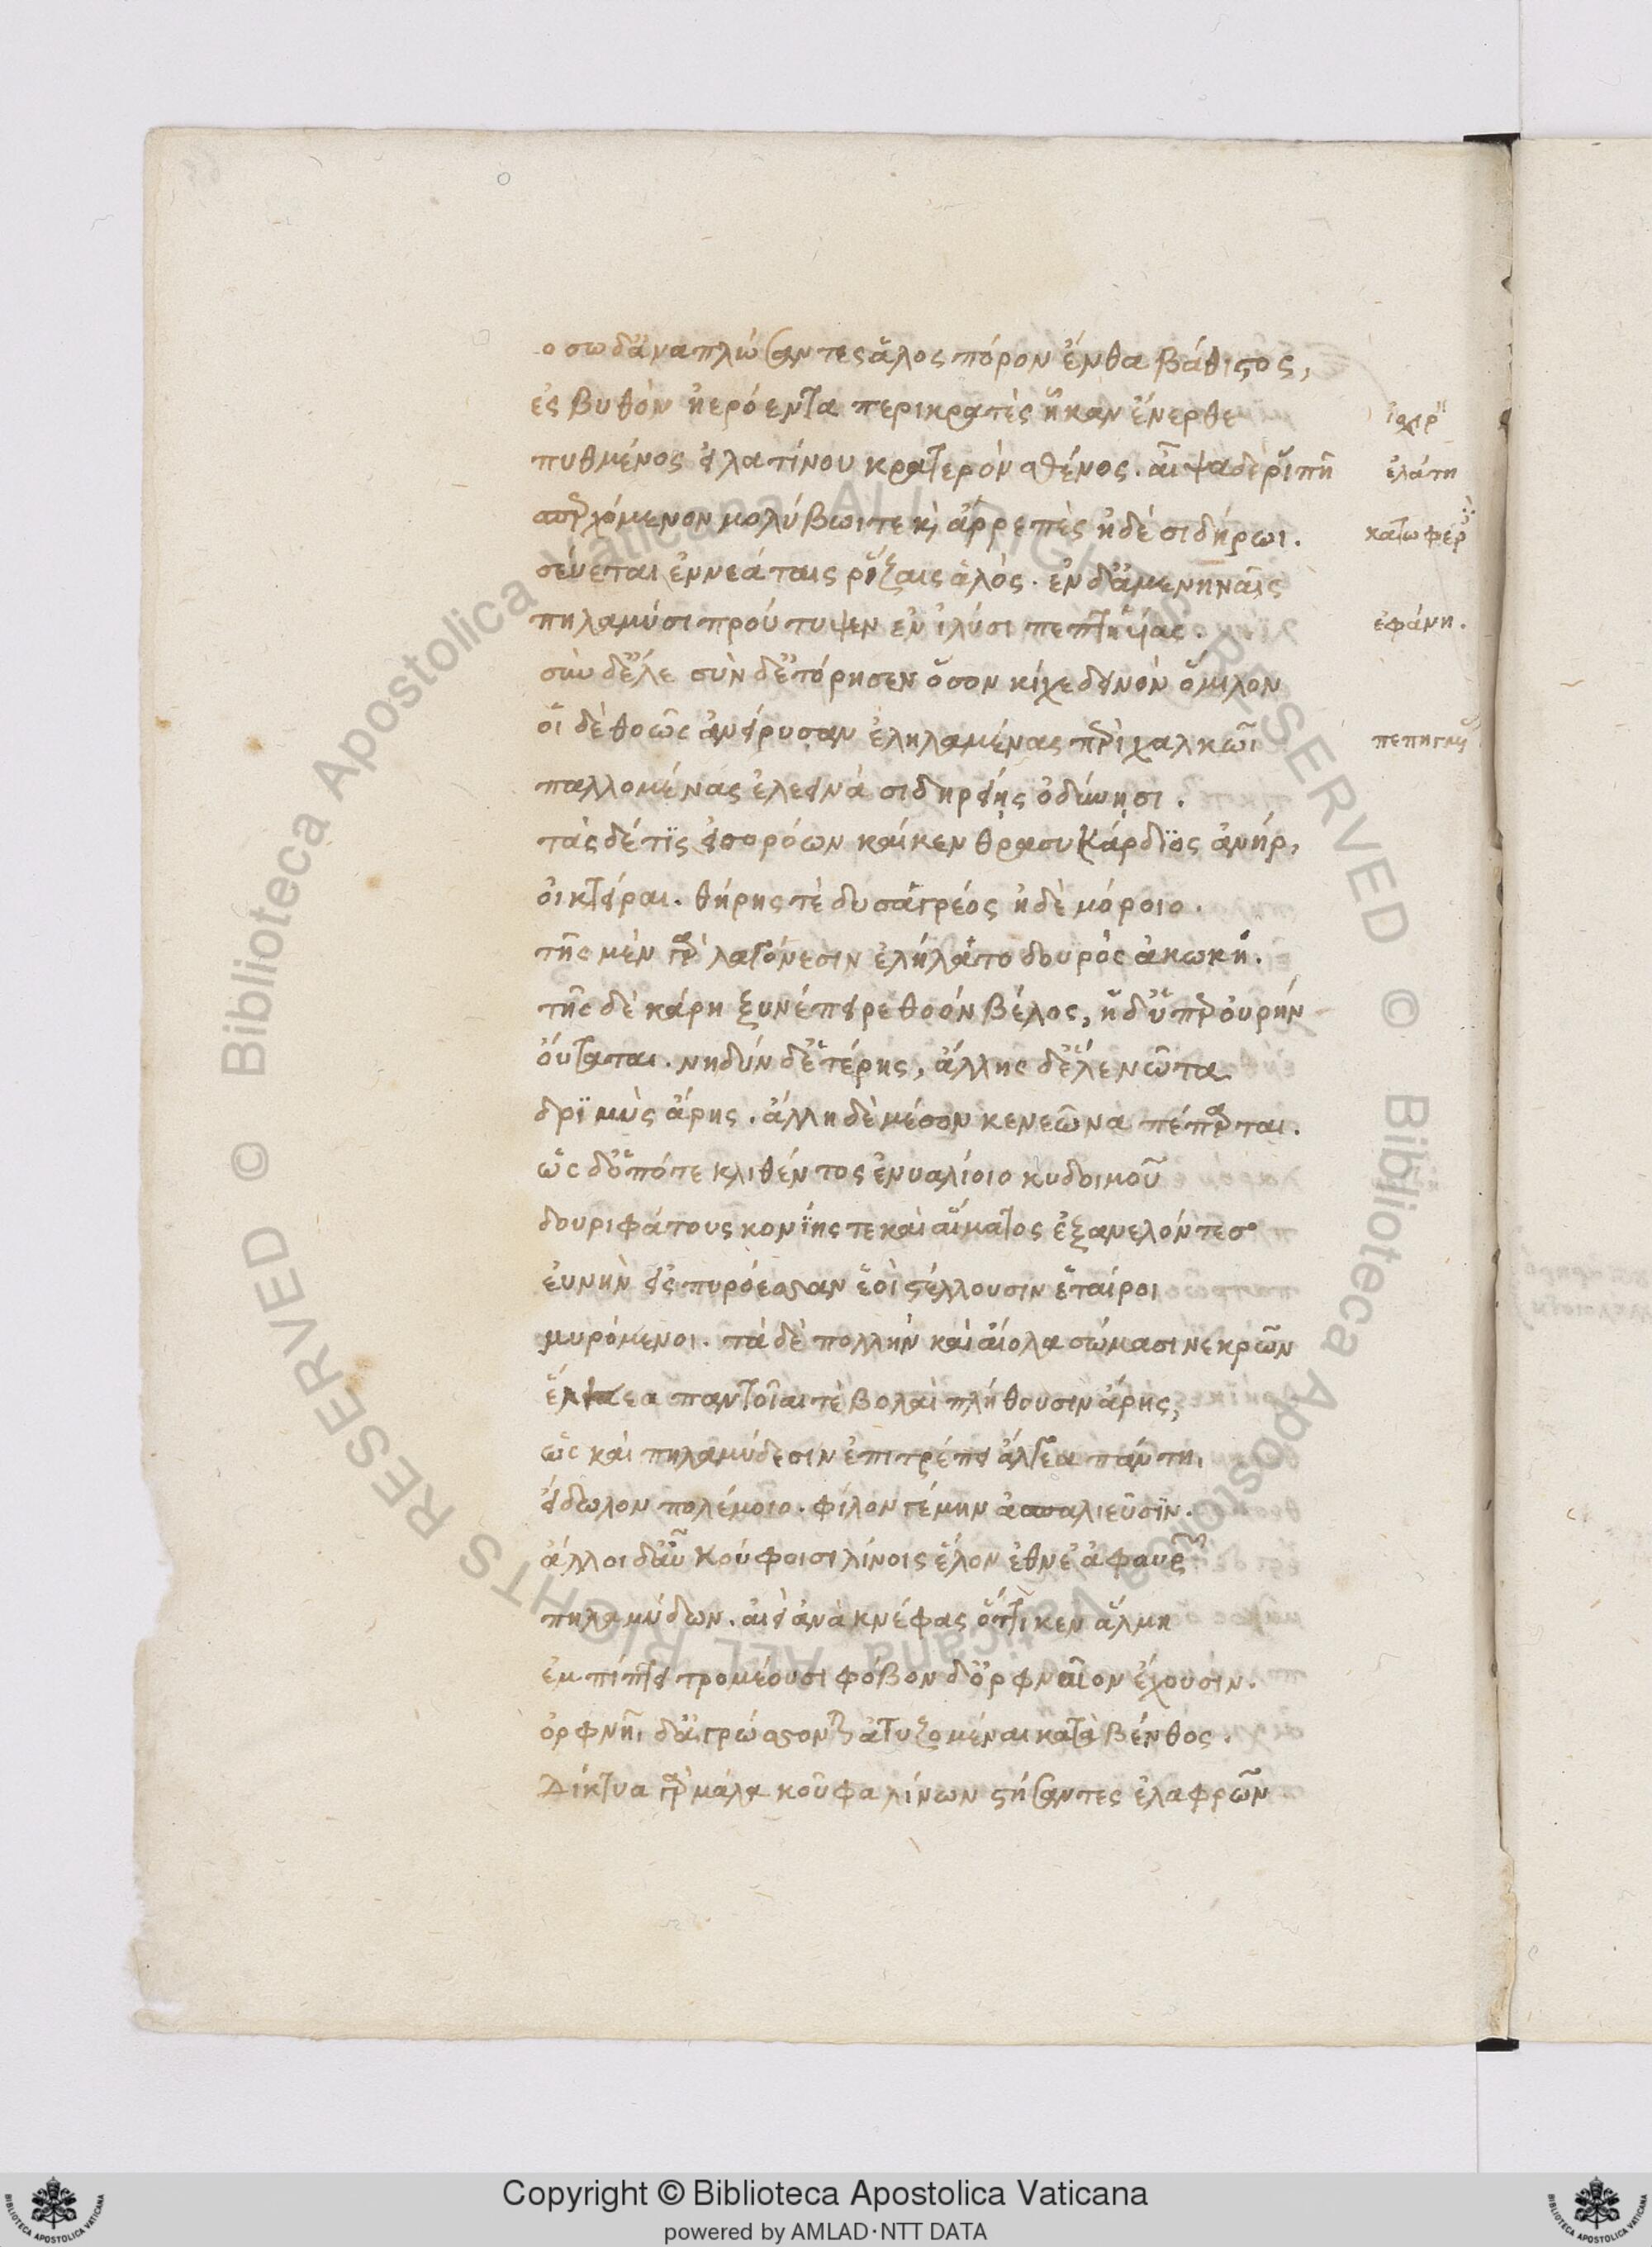 οσωδἀναπλώσαντες ἅλος πόρον ἔνθα βάθιςος,
ἐς βυθὸν ἠερόεντα περικρατὲς ἧκαν ἔνερθε
πυθμένος εἰλατίνου κρατερὸν σθένος. αἶψα δὲ ῥιπῆ
ἐλάτη
ἀρχόμενον μολύβωι τε κὶ ἀρρεπὲς ἠδὲ σιδήρωι.
κατωφερ
σεύεται ἐννεάταις ῥίζαις ἁλός. ἐν δ' ἀμενηναῖς
πηλαμύσι προύτυψεν ἐν ἰλύσι πεπτηυίας.
ἐφάνη.
σὺν δ' ἕλε σὺν δ' ἐτόρησεν ὅσον κίχε δεινὸν ὅμιλον
οἳ δὲ θοῶς ἀνείρυσαν ἐληλαμένας περὶ χαλκῶι
παλλομένας ἐλεεινὰ σιδηρείης ὀδύνῃσι.
τὰς δέ τϊς εἰσορόων καίκεν θρασυκάρδϊος ἀνήρ,
οἰκτείραι. θήρης τὲ δυσαγρέος ἠδὲ μόροιο.
τῆς μὲν γὰρ λαγόνεσιν ἐλήλατο δουρὸς ἀκωκή.
τῆς δὲ κάρη ξυνέπειρε θοὸν βέλος, ἡ δ' ὑπὲρ οὐρήν
οὔταται. νηδύν δ' ἑτέρης, ἄλλης δ' ἕλε νῶτα
δρϊμὺς ἄρης. ἄλλη δὲ μέσον κενεῶνα πέπαρται.
ὡς δ' ὁπότε κλιθέντος ἐνυαλίοιο κυδοιμοῦ
δουριφάτους κονΐης τε καὶ αἵματος ἐξανελόντεσ
εὐνὴν εἰς πυρόεσσαν ἑοὶ ςέλλουσιν ἑταίροι
μυρόμενοι. τὰ δὲ πολλὴν καὶ αἰόλα σώμασι νεκρῶν
ἕλκεα παντοῖαι τὲ βολαὶ πλήθουσιν ἄρης,
ὡς καὶ πηλαμύδεσιν ἐπιτρέπει ἄλγεα πάντη.
εἴδωλον πολέμοιο. φίλον γέ μὴν ἀσπαλιεῦσϊν.
ἄλλοι δ' αὖ κούφοισι λίνοις ἕλον ἔθνε' ἀφαυρῶν
πηλαμύδων. αἰεὶ ἀνὰ κνέφας ὅττικεν ἅλμη
ἐμπίπτει τρομέουσι φόβον δ' ὀρφναῖον ἔχουσιν.
ὀρφνῆι δ' ἀγρώσσονται ἀτυζομέναι κατὰ βένθος.
Δίκτυα γὰρ μάλα κοῦφα λίνων ςήσαντες ἐλαφρῶν